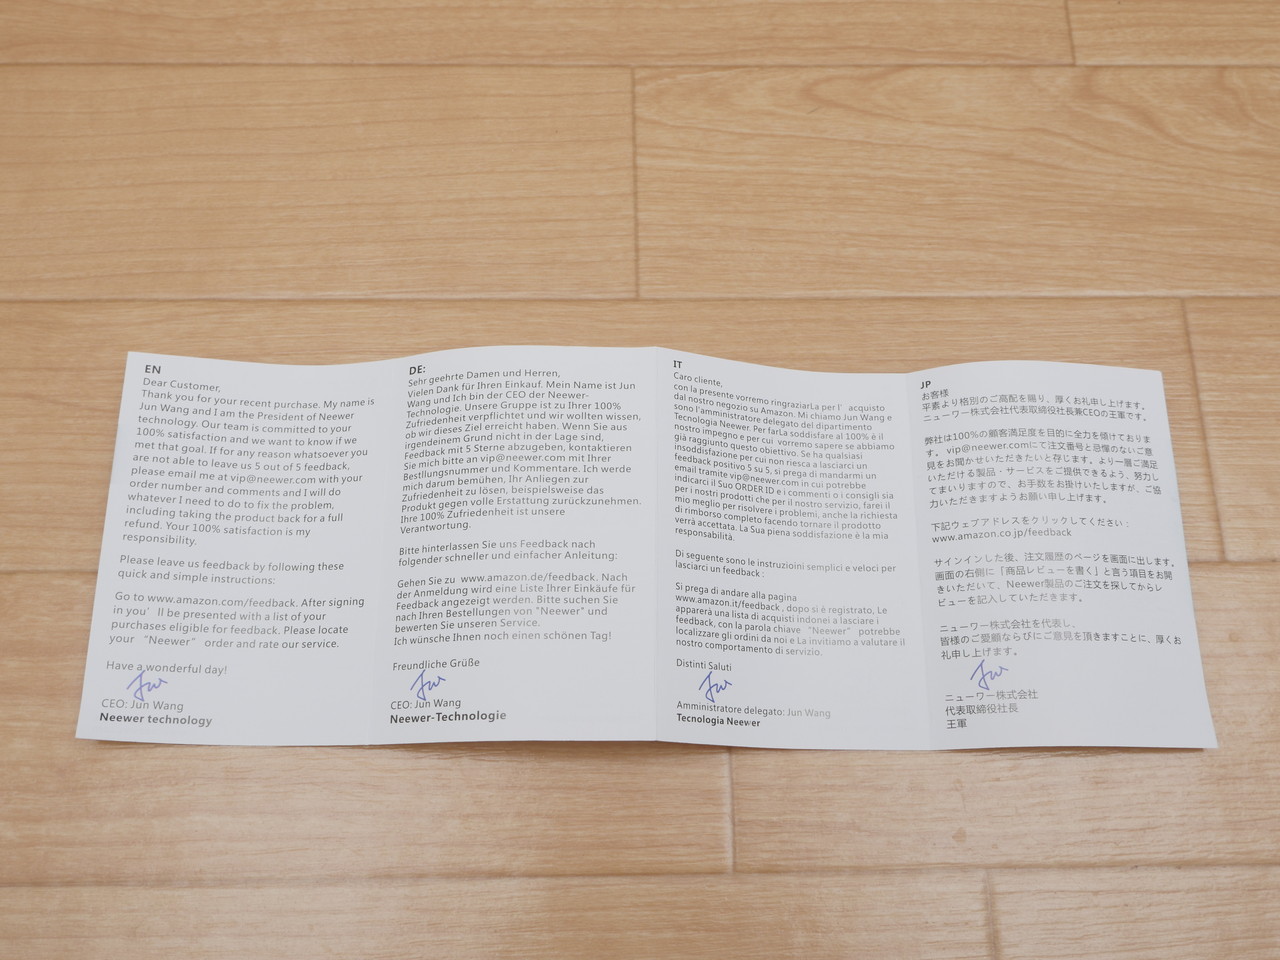 EN
Dear Customer,
Thank you for your recent purchase. My name is
Jun Wang and I am the President of Neewer
technology. Our team is committed to your
100% satisfaction and we want to know if we
met that goal. If for any reason whatsoever you
are not able to leave us 5 out of 5 feedback,
please email me at vip@neewer.com with your
order number and comments and I will do
whatever I need to do to fix the problem,
including taking the product back for a full
refund. Your 100% satisfaction is my
responsibility.
Please leave us feedback by following these
quick and simple instructions:
Go to www.amazon.com/feedback. After signing
in you' ll be presented with a list of your
purchases eligible for feedback. Please locate
your “Neewer” order and rate our service.
Have a wonderful day!
Jw
CEO: Jun Wang
Neewer technology
DE:
Sehr geehrte Damen und Herren,
Vielen Dank für Ihren Einkauf. Mein Name ist Jun
Wang und Ich bin der CEO der Neewer-
Technologie. Unsere Gruppe ist zu Ihrer 100%
Zufriedenheit verpflichtet und wir wollten wissen,
ob wir dieses Ziel erreicht haben. Wenn Sie aus
irgendeinem Grund nicht in der Lage sind,
Feedback mit 5 Sterne abzugeben, kontaktieren
Sie mich bitte an vip@neewer.com mit Ihrer
Bestllungsnummer und Kommentare. Ich werde
mich darum bemühen, Ihr Anliegen zur
Zufriedenheit zu lösen, beispielsweise das
Produkt gegen volle Erstattung zurückzunehmen.
Ihre 100% Zufriedenheit ist unsere
Verantwortung.
Bitte hinterlassen Sie uns Feedback nach
folgender schneller und einfacher Anleitung:
Gehen Sie zu www.amazon.de/feedback. Nach
der Anmeldung wird eine Liste Ihrer Einkäufe für
Feedback angezeigt werden. Bitte suchen Sie
nach Ihren Bestellungen von "Neewer" und
bewerten Sie unseren Service.
Ich wünsche Ihnen noch einen schönen Tag!
Freundliche Grüße
Jw
CEO: Jun Wang
Neewer-Technologie
IT
Caro cliente,
con la presente vorremo ringraziarLa per l' acquisto
dal nostro negozio su Amazon. Mi chiamo Jun Wang e
sono l'amministratore delegato del dipartimento
Tecnologia Neewer. Per farLa soddisfare al 100% è il
nostro impegno e per cui vorremo sapere se abbiamo
già raggiunto questo obiettivo. Se ha qualsiasi
insoddisfazione per cui non riesca a lasciarci un
feedback positivo 5 su 5, si prega di mandarmi un
email tramite vip@neewer.com in cui potrebbe
indicarci il Suo ORDER ID e i commenti o i consigli sia
per i nostri prodotti che per il nostro servizio, farei il
mio meglio per risolvere i problemi, anche la richiesta
di rimborso completo facendo tornare il prodotto
verrà accettata. La Sua piena soddisfazione è la mia
responsabilità.
Di seguente sono le instruzioini semplici e veloci per
lasciarci un feedback :
Si prega di andare alla pagina
www.amazon.it/feedback , dopo si è registrato, Le
apparerà una lista di acquisti indonei a lasciare i
feedback, con la parola chiave “Neewer” potrebbe
localizzare gli ordini da noi e La invitiamo a valutare il
nostro comportamento di servizio.
Distinti Saluti
Jw
Amministratore delegato: Jun Wang
Tecnologia Neewer
JP
お客様
平素より格別のご高配を賜り、厚くお礼申し上げます。
ニューワー株式会社代表取締役社長兼CEOの王軍です。
弊社は100%の顧客満足度を目的に全力を傾けておりま
す。vip@neewer.comにて注文番号と忌憚のないご意
見をお聞かせいただきたいと存じます。より一層ご満足
いただける製品・サービスをご提供できるよう、努力し
てまいりますので、お手数をお掛けいたしますが、ご協
力いただきますようお願い申し上げます。
下記ウェブアドレスをクリックしてください：
www.amazon.co.jp/feedback
サインインした後、注文履歴のページを画面に出します。
画面の右側に「商品レビューを書く」と言う項目をお開
きいただいて、Neewer製品のご注文を探してからレ
ビューを記入していただきます。
ニューワー株式会社を代表し、
皆様のご愛顧ならびにご意見を頂きますことに、厚くお
礼申し上げます。
Jw
ニューワー株式会社
代表取締役社長
王軍